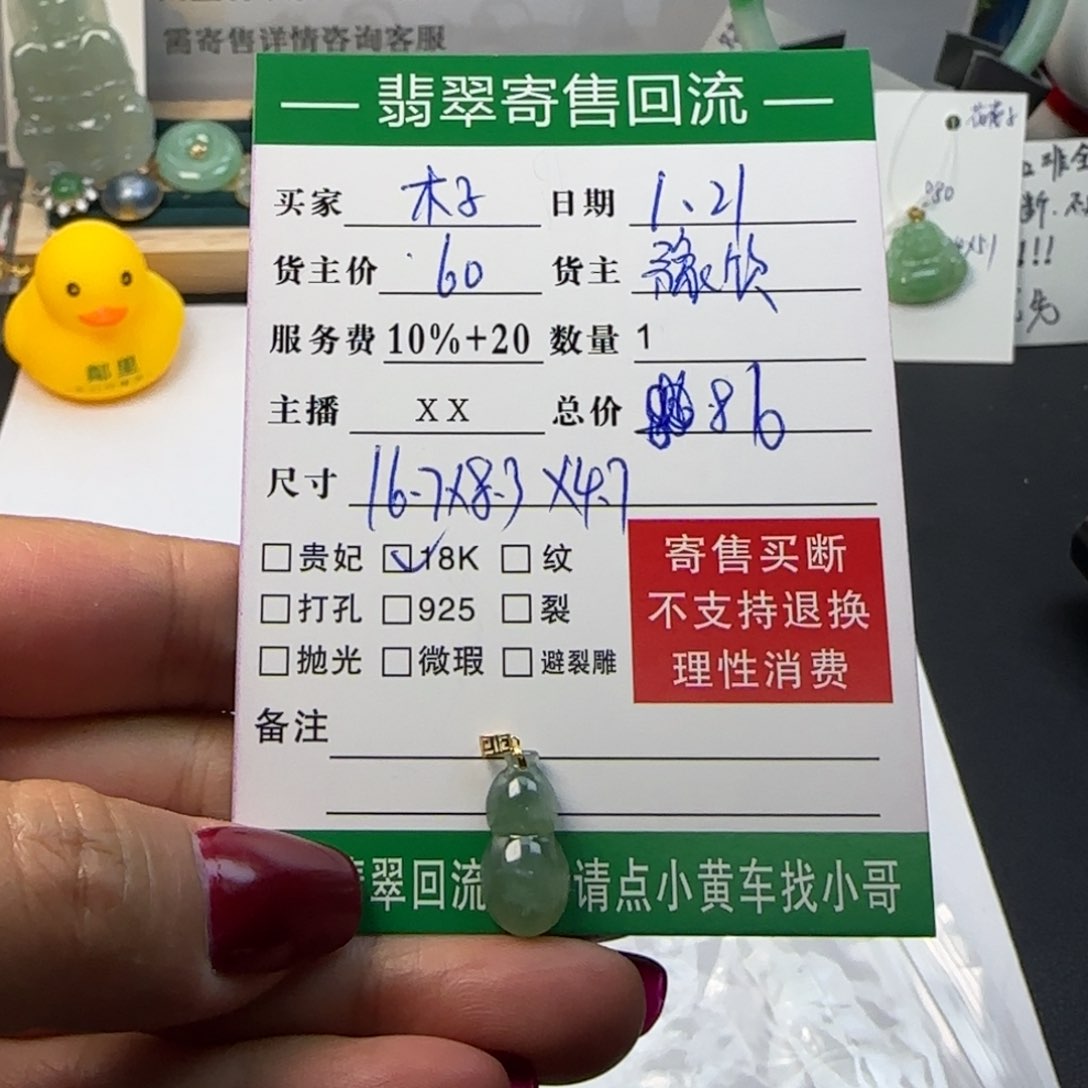 需寄售详情咨询客服
— 翡翠寄售回流 —
买家 木子 日期 1、21
货主价 60 货主 欣
服务费 10%+20 数量 1
主播 XX 总价 86
尺寸 16.7X8.3X4.7
□贵妃 ☑18K □纹
□打孔 □925 □裂
□抛光 □微瑕 □避裂雕
寄售买断
不支持退换
理性消费
备注
翠回流 请点小黄车找小哥
鄰里
280
!!!